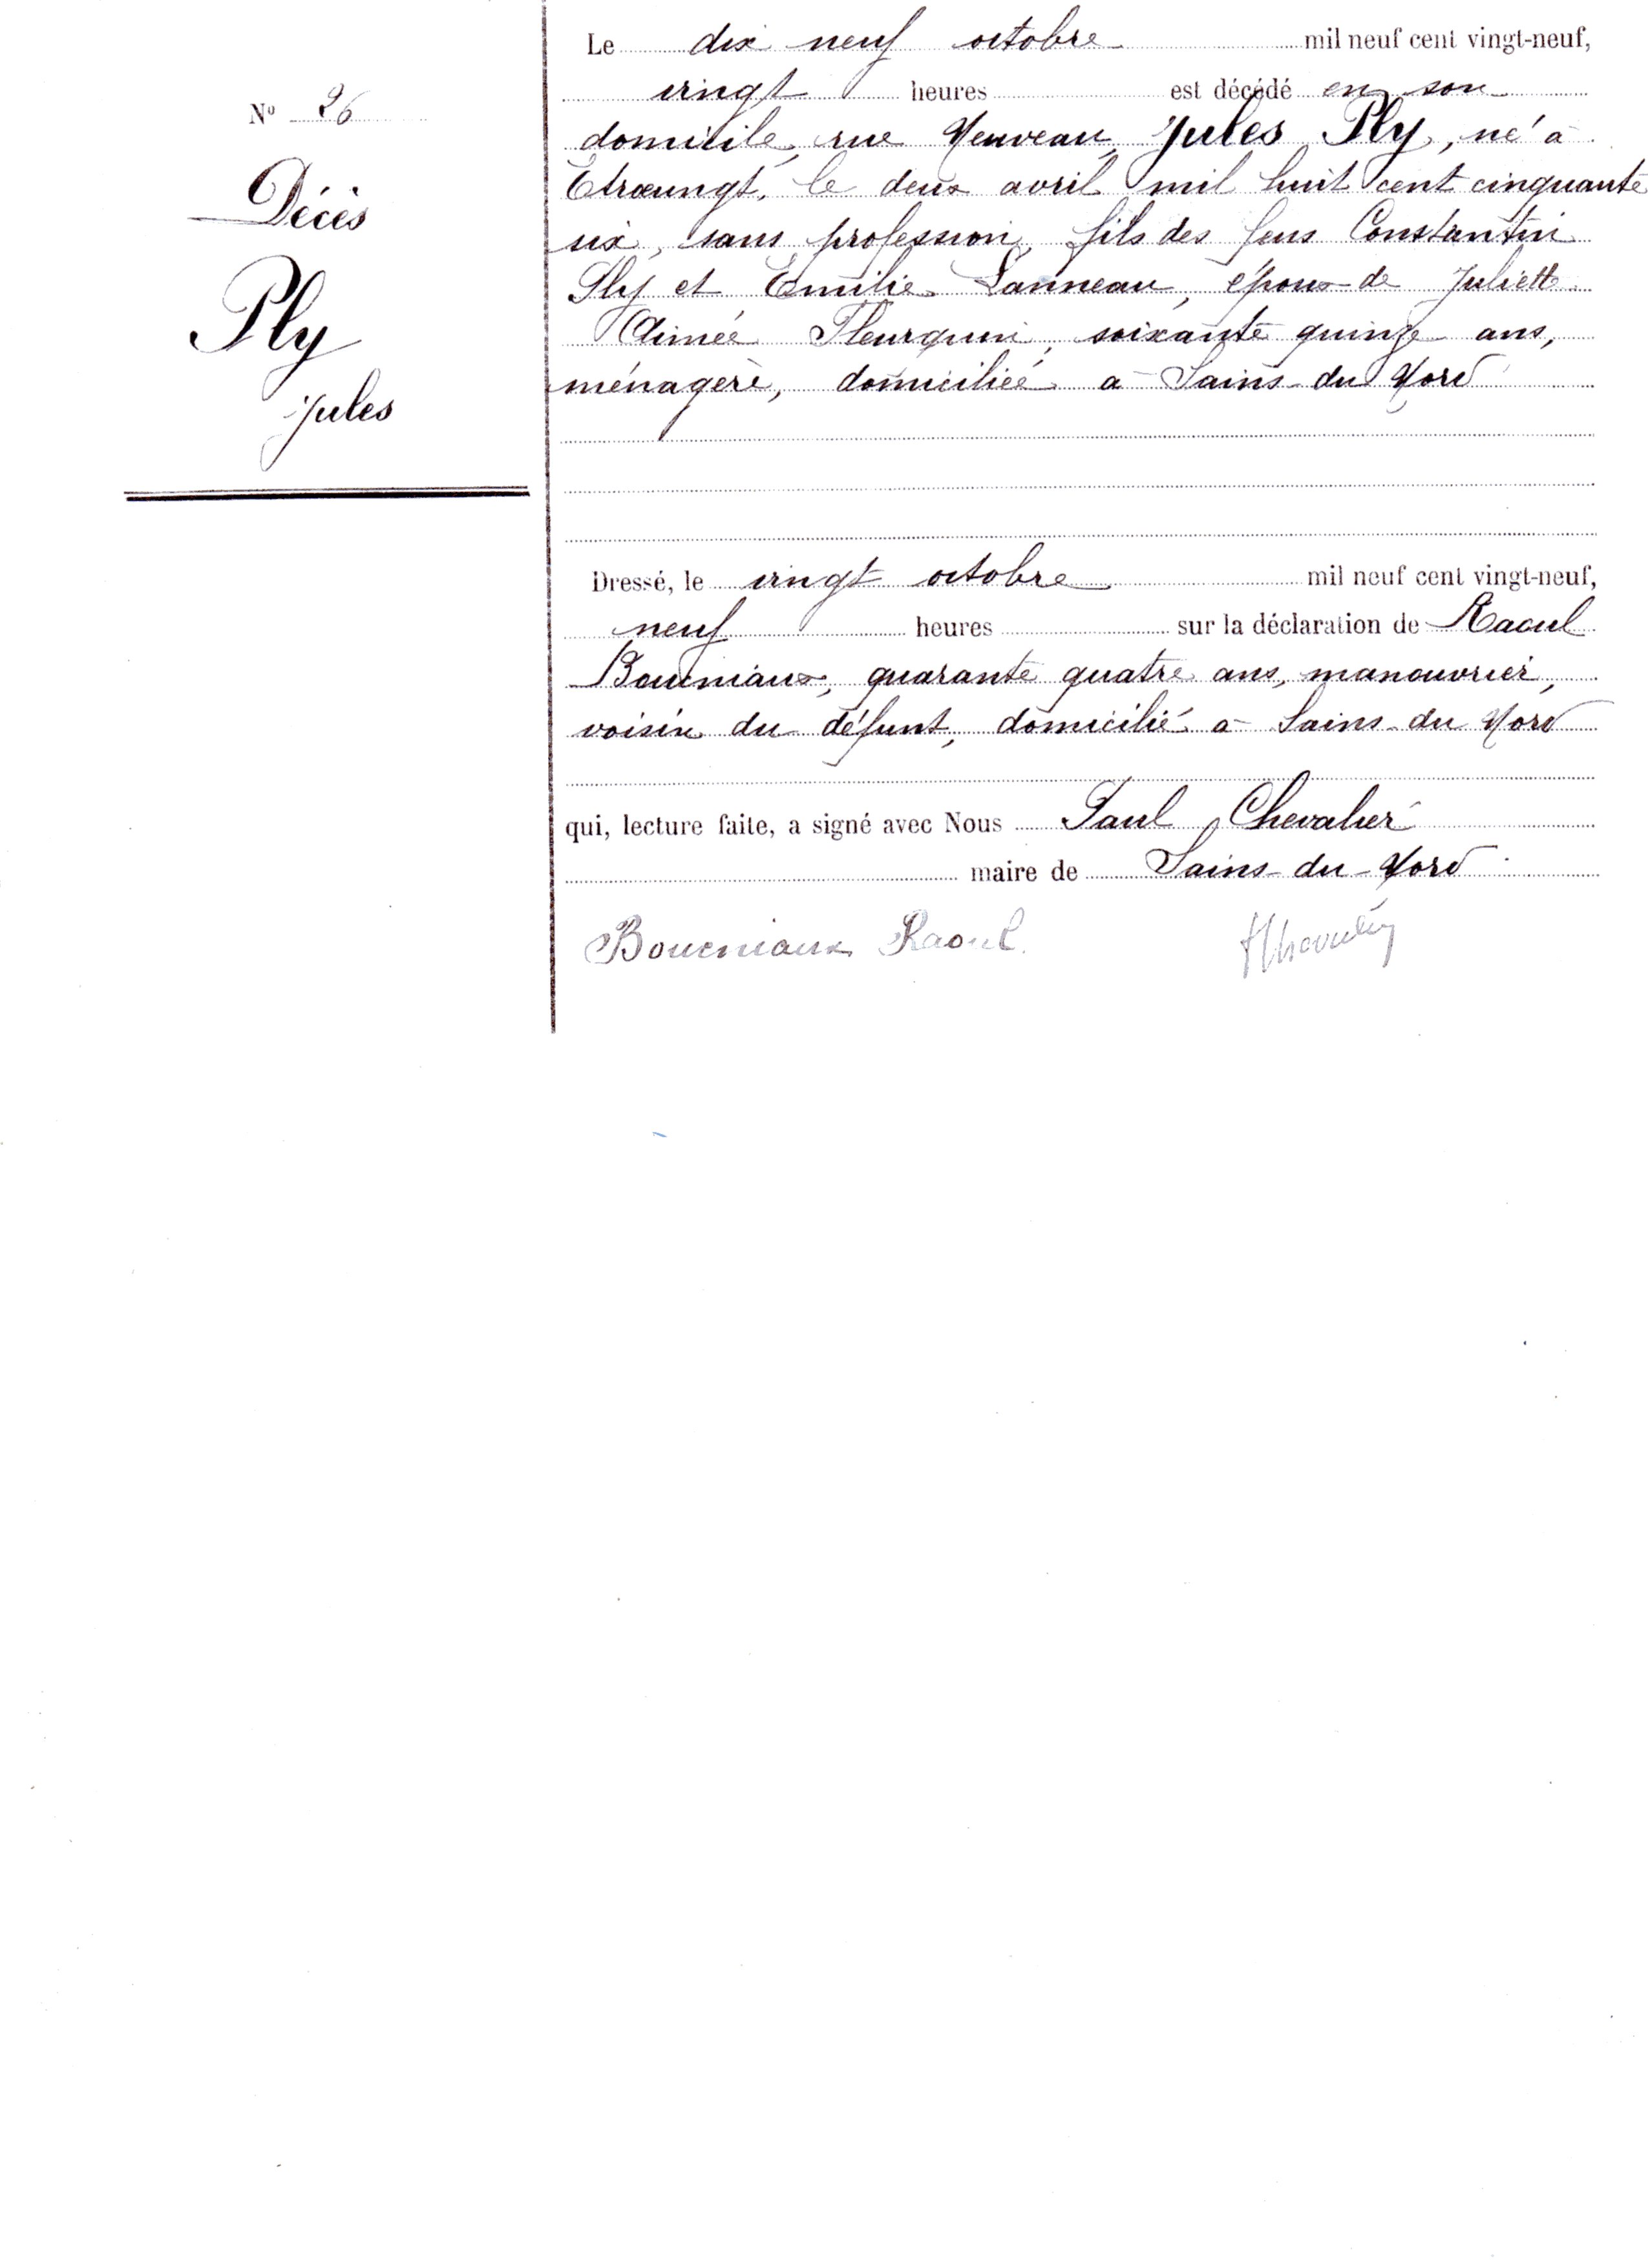 Nº 26
Décès
Ply
Jules
Le dix neuf octobre mil neuf cent vingt-neuf,
vingt heures est décédé en son
domicile, rue Nouveau, Jules Ply, né à
Etrœungt, le deux avril mil huit cent cinquante
six, sans profession, fils des feus Constantin
Ply et Emilie Lanneau, époux de Juliette
Aimée Fleurquin, soixante quinze ans,
ménagère, domiciliée à Sains-du-Nord
Dressé, le vingt octobre mil neuf cent vingt-neuf,
neuf heures sur la déclaration de Raoul
quarante quatre ans, manouvrier,
voisin du défunt, domicilié à Sains-du-Nord
qui, lecture faite, a signé avec Nous Paul Chevalier
maire de Sains-du-Nord
Raoul